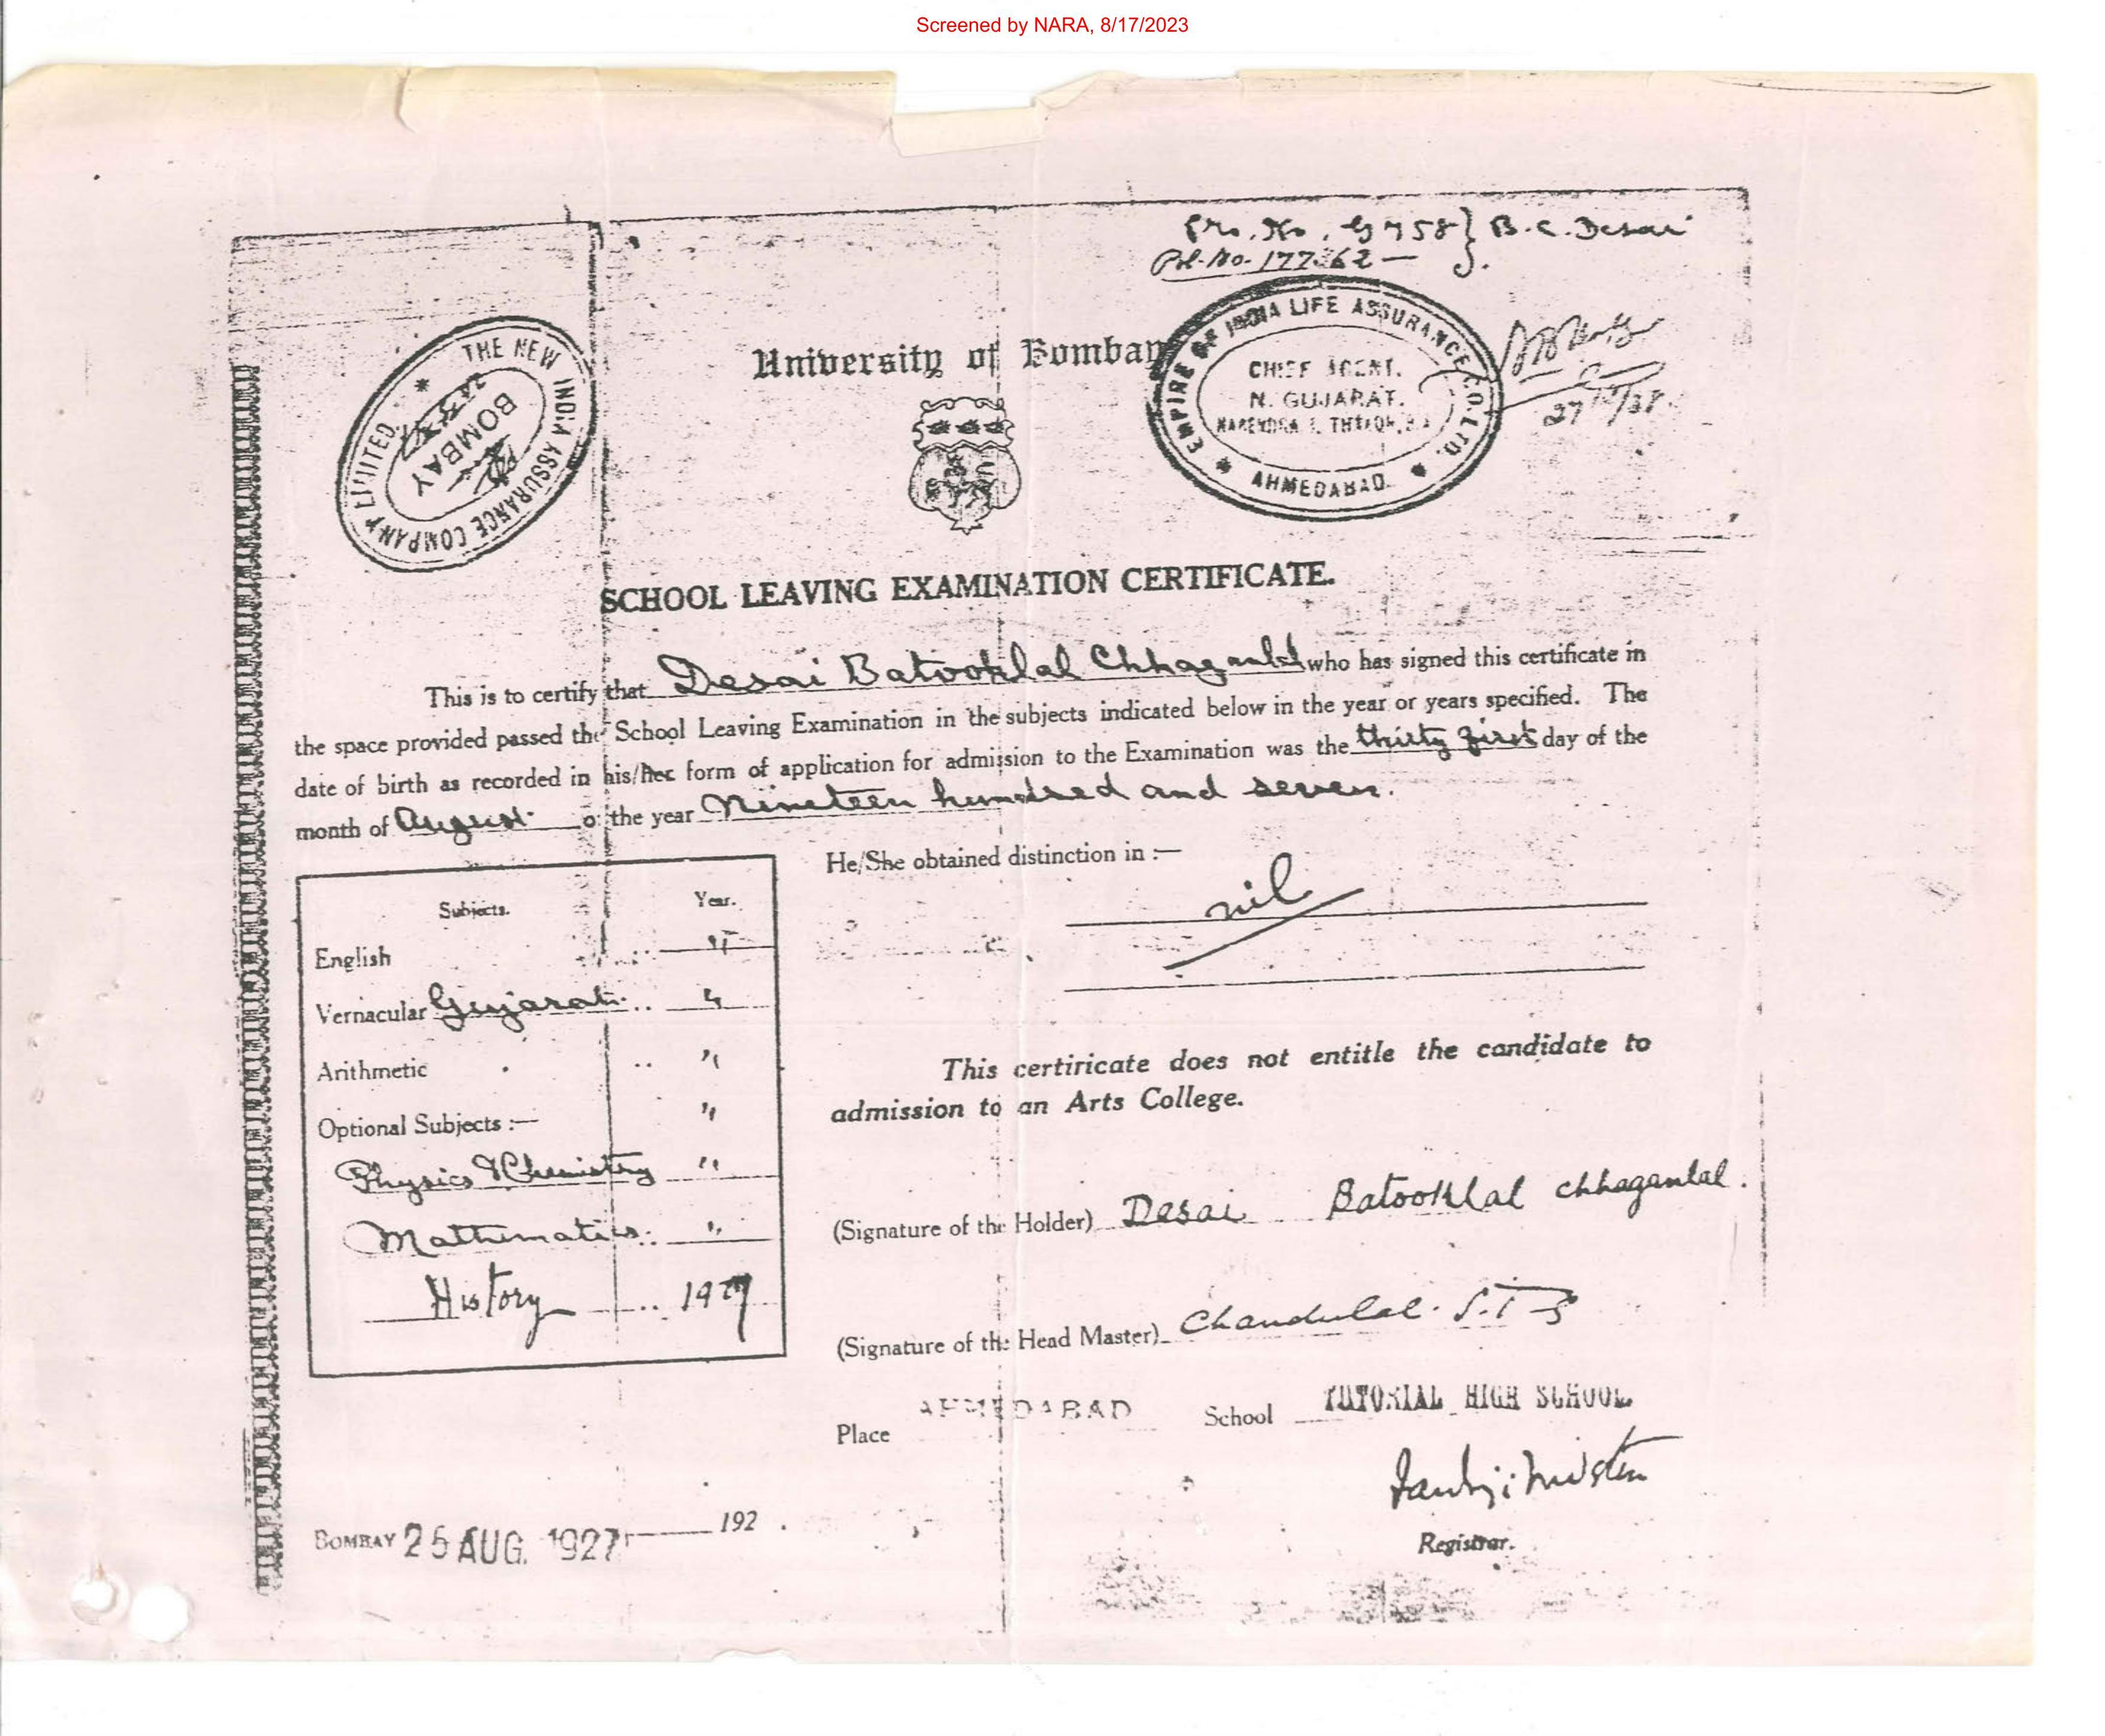 Screened by NARA, 8/17/2023
Pro. No. G 758 } B. C. Desai
Pol. No. 177362 —
THE NEW INDIA ASSURANCE COMPANY LIMITED
BOMBAY
University of Bombay
EMPIRE OF INDIA LIFE ASSURANCE CO. LTD.
CHIEF AGENT.
N. GUJARAT.
AHMEDABAD.
SCHOOL LEAVING EXAMINATION CERTIFICATE.
This is to certify that Desai Batooklal Chhaganlal who has signed this certificate in
the space provided passed the School Leaving Examination in the subjects indicated below in the year or years specified. The
date of birth as recorded in his/her form of application for admission to the Examination was the thirty first day of the
month of August of the year Nineteen hundred and seven.
He/She obtained distinction in :—
nil
Subjects. Year.
English .. "
Vernacular Gujarati .. "
Arithmetic .. "
Optional Subjects :— "
Physics & Chemistry "
Mathematics. "
History .. 1927
This certiricate does not entitle the candidate to
admission to an Arts College.
(Signature of the Holder) Desai Batooklal chhaganlal.
(Signature of the Head Master) Chandulal. S.
Place AHMEDABAD School TUTORIAL HIGH SCHOOL
Registrar.
BOMBAY 25 AUG. 1927 192 .